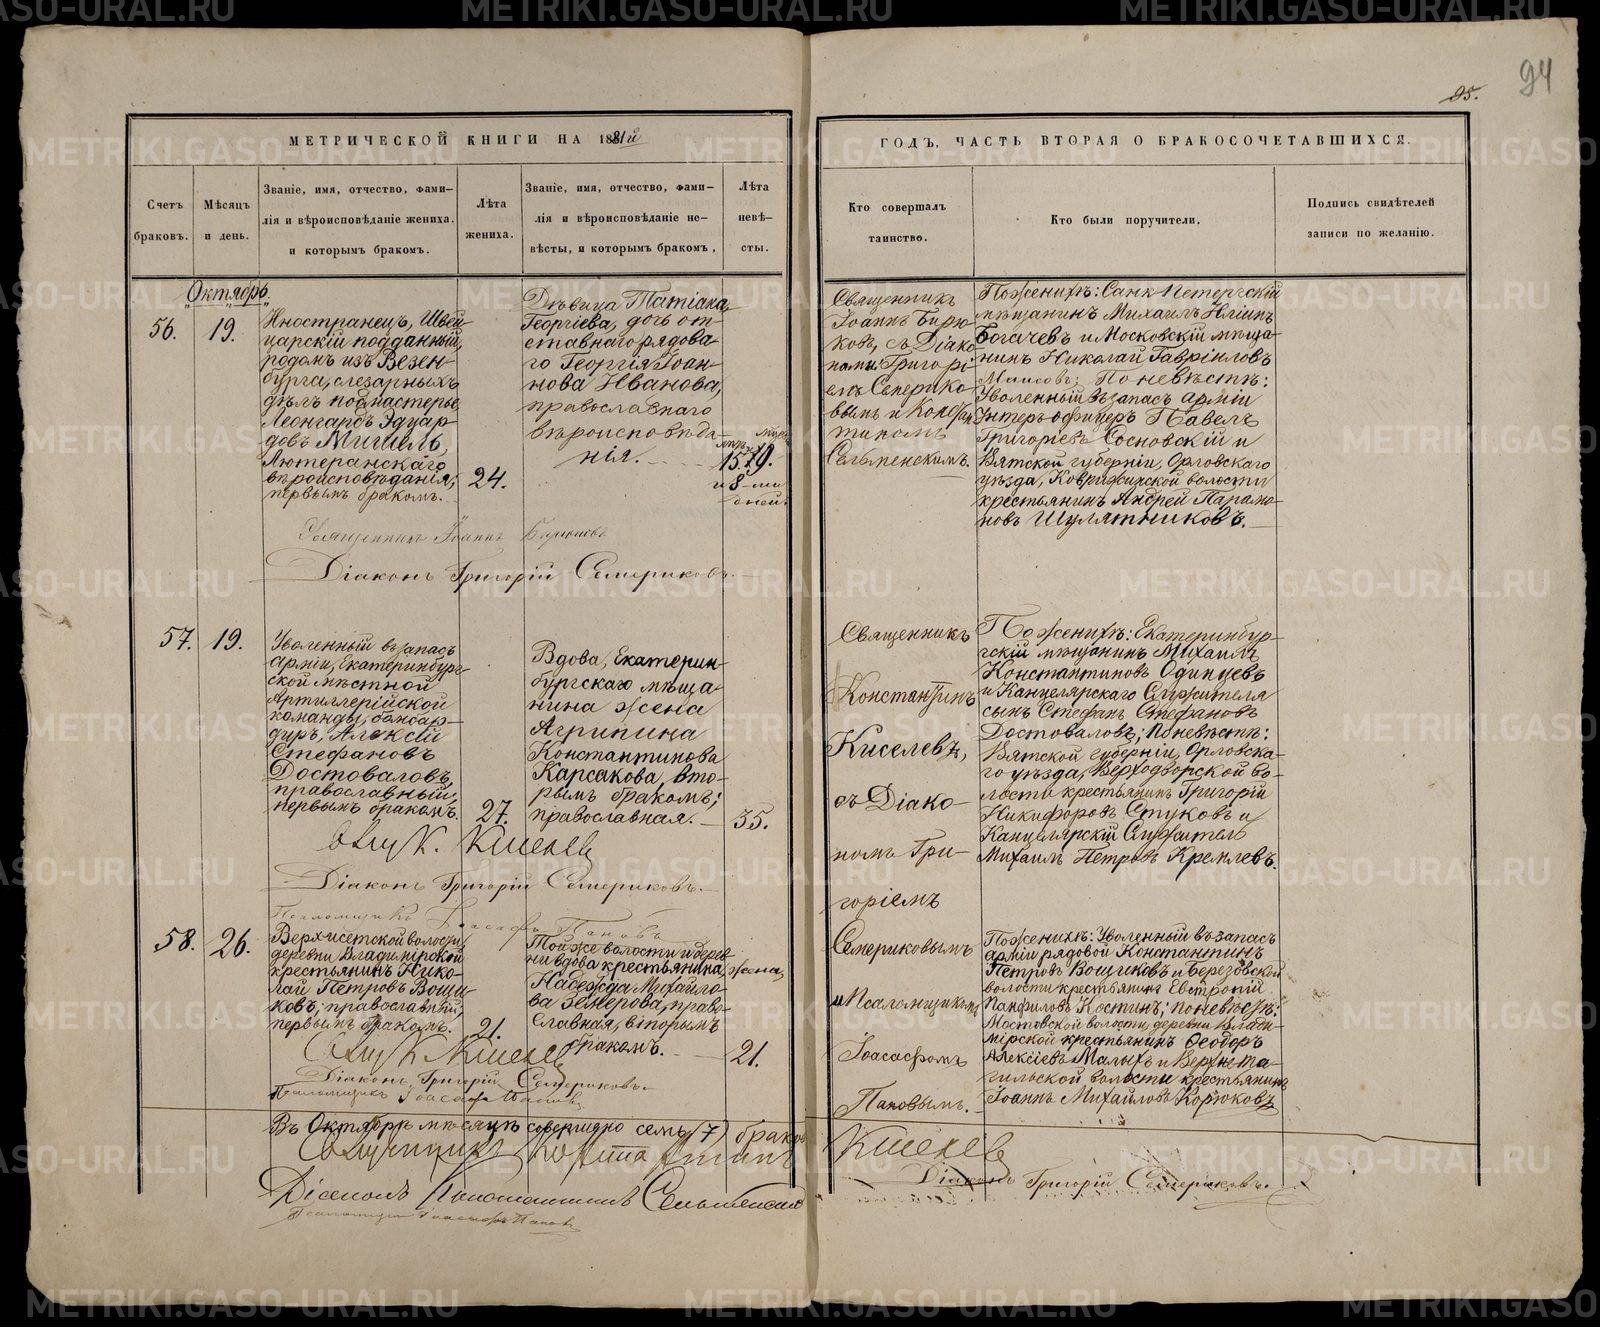 94
95.
МЕТРИЧЕСКОЙ КНИГИ НА 1881й
ГОДЪ, ЧАСТЬ ВТОРАЯ О БРАКОСОЧЕТАВШИХСЯ.
Счетъ
браковъ.
Мѣсяцъ
и день.
Званіе, имя, отчество, фами-
лія и вѣроисповѣданіе жениха.
и которымъ бракомъ.
Лѣта
жениха.
Званіе, имя, отчество, фами-
лія и вѣроисповѣданіе не-
вѣсты, и которымъ бракомъ,
Лѣта
невѣ-
сты.
Кто совершалъ
таинство.
Кто были поручители.
Подпись свидѣтелей
записи по желанію.
Октябрь
56.
19.
Иностранецъ, Швей-
царскій подданный,
родомъ изъ Везен-
бурга, слезарныхъ
дѣлъ подмастерье
Леонгардъ Эдуар-
довъ Мишель,
Лютеранскаго
вѣроисповѣданія;
первымъ бракомъ.
24.
Дѣвица Татіана
Георгіева, дочь от-
ставнаго рядова-
го Георгія Іоан-
нова Иванова,
православнаго
вѣроисповѣда-
нія.
и 8-ми
дней.
Священникъ
Іоаннъ Бирю-
ковъ, съ Діако-
нами: Григорі-
емъ Семерико-
вымъ и Констан
тиномъ
Сельменскимъ.
По женихѣ: Санк-Петергскій
мѣщанинъ Михаилъ Иліинъ
Богачевъ и Московскій мѣща-
нинъ Николай Гавріиловъ
По невѣстѣ:
Уволенный въ запасъ арміи
Унтеръ-офицеръ Павелъ
Григорьевъ Сосновскій и
Вятской губерніи, Орловскаго
уѣзда, волости
крестьянинъ Андрей Парамо-
новъ Шулятниковъ.
Священникъ Іоаннъ Бирюковъ
Діаконъ Григорій Семериковъ.
57.
19.
Уволенный въ запасъ
арміи, Екатеринбург-
ской мѣстной
Артиллерійской
команды, бомбар-
диръ, Алексій
Стефановъ
Достоваловъ,
православный,
первымъ бракомъ.
27.
Вдова, Екатерин-
бургскаго мѣща-
нина жена
Агрипина
Константинова
Карсакова, вто-
рымъ бракомъ;
православная.
35.
Священникъ
Константинъ
Киселевъ,
съ Діако-
номъ Гри-
горіемъ
Семериковымъ
и Псаломщикомъ
Іоасафомъ
Пановымъ.
По женихѣ: Екатеринбур-
гскій мѣщанинъ Михаилъ
Константиновъ Одинцевъ
и Канцелярскаго Служителя
сынъ Стефанъ Стефановъ
Достоваловъ; по невѣстѣ:
Вятской губерніи, Орловска-
го уѣзда, Верходворской во-
лости крестьянинъ Григорій
Никифоровъ Стуковъ и
Канцелярскій Служитель
Михаилъ Петровъ Кремлевъ.
Свящ. К. Киселевъ
Діаконъ Григорій Семериковъ.
Псаломщикъ Іоасафъ Пановъ
58.
26.
Верх-исетской волости,
деревни Владимірской
крестьянинъ Нико-
лай Петровъ Вощи-
ковъ; православный,
первымъ бракомъ.
21.
Той же волости и дерев
ни вдова крестьянина жена
Надежда Михайло-
ва Земерова, право-
славная, вторымъ
бракомъ.
21.
По женихѣ: Уволенный въ запасъ
арміи рядовой Константинъ
Петровъ Вощиковъ и Березовской
волости крестьянинъ Евстропій
Панфиловъ Костинъ; по невѣстѣ:
Мостовской волости, деревни Влади-
мірской крестьянинъ Ѳеодоръ
Алексіевъ Малыхъ и Верхнета-
гильской волости крестьянинъ
Іоаннъ Михайловъ Корюковъ
Свящ. К. Киселевъ
Діаконъ Григорій Семериковъ.
Псаломщикъ Іоасафъ Пановъ
Въ Октябрѣ мѣсяцѣ совершено семь (7) браковъ
Священникъ Константинъ Киселевъ
Діаконъ Григорій Семериковъ.
Діаконъ Константинъ Сельменскій
Псаломщикъ Іоасафъ Пановъ
METRIKI.GASO-URAL.RU